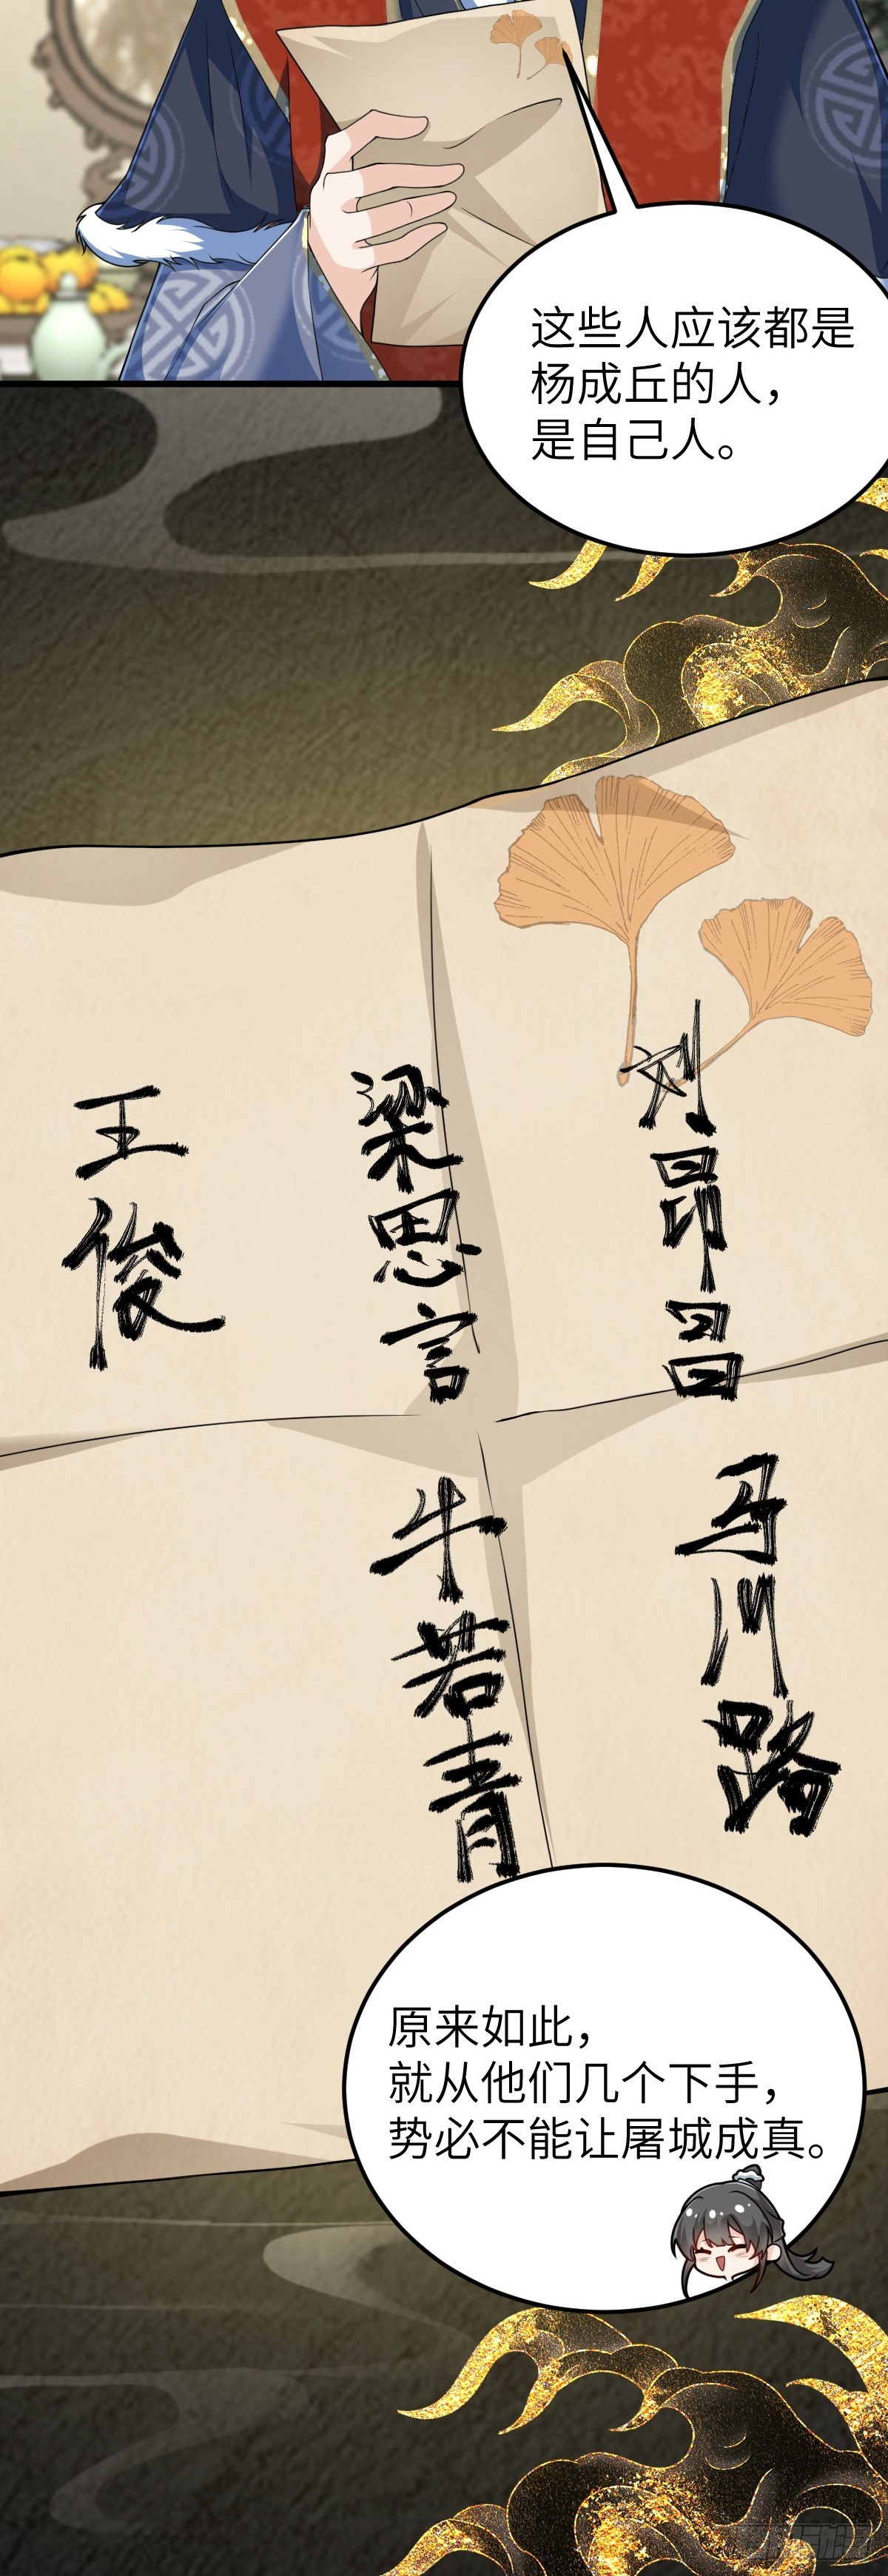 这些人应该都是
杨成丘的人，
是自己人。
刘昂昌
马川路
梁思言
牛若青
王俊
原来如此，
就从他们几个下手，
势必不能让屠城成真。